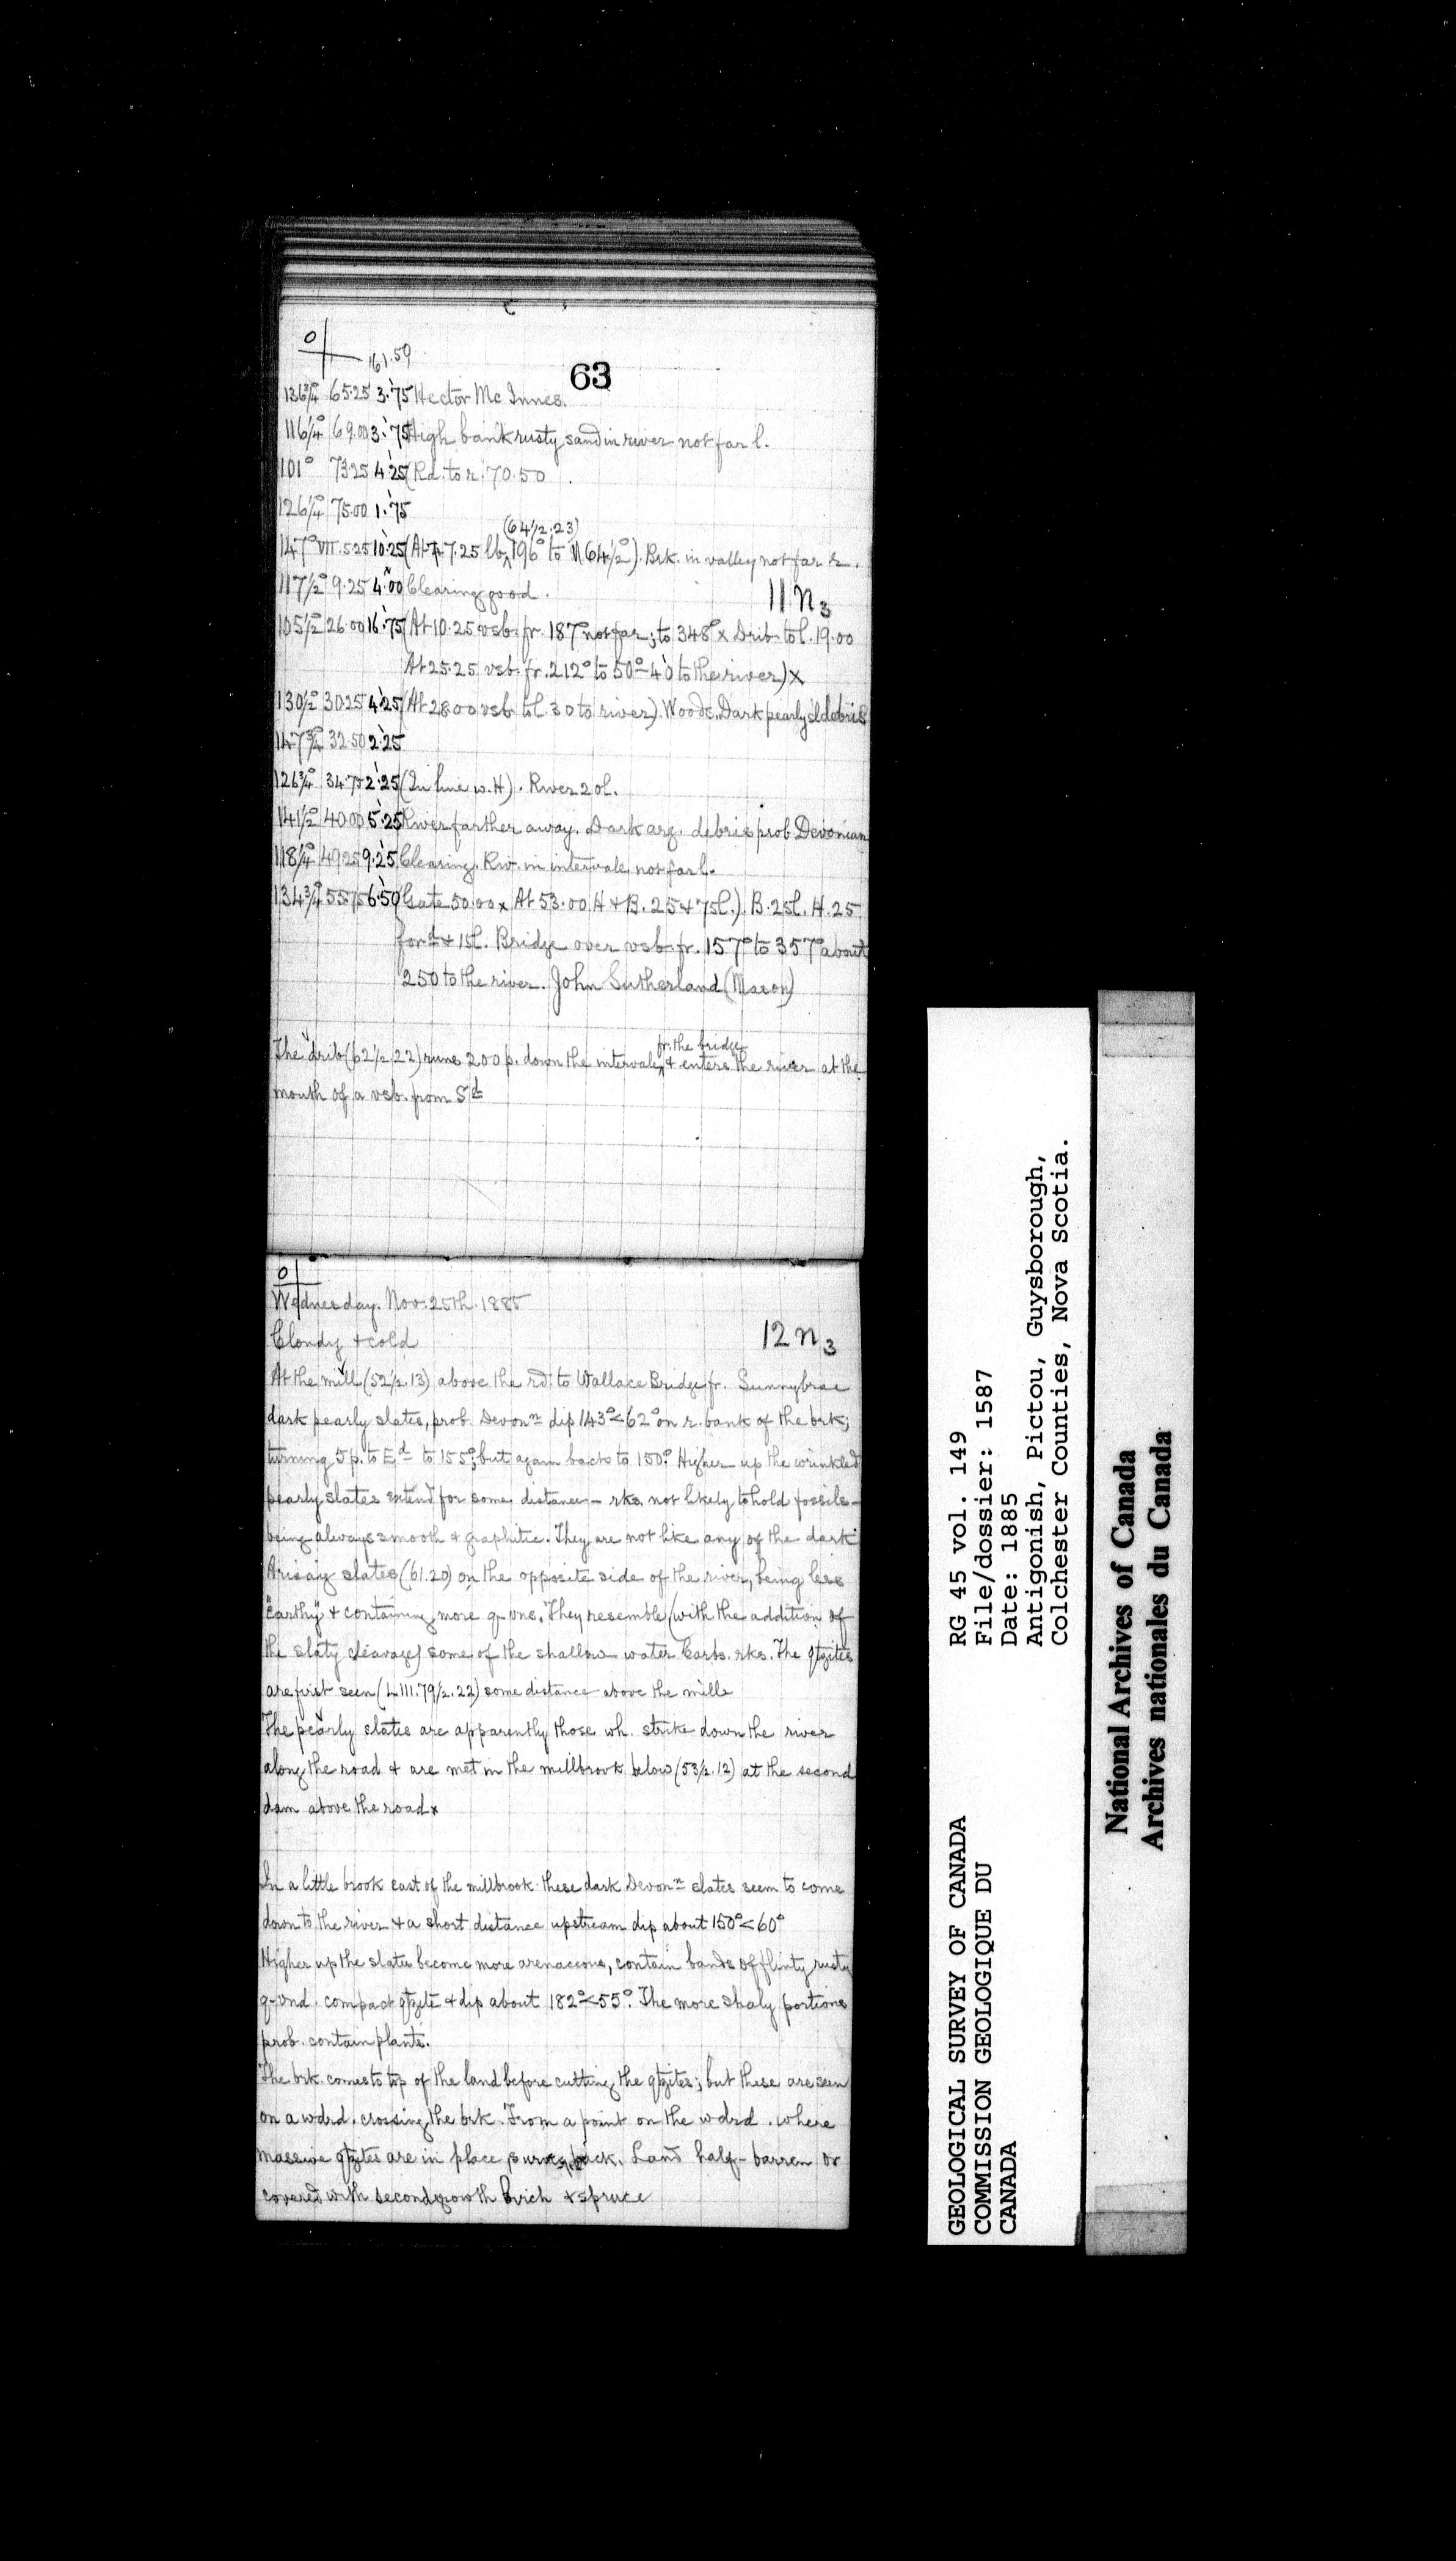 61.50
63
136¾° 65.25 3.75 Hector Mc Innes.
116¼° 69.00 3.75 High bank rusty sand in river not far l.
101° 73.25 4.25 (Rd. to r. 70.50
126¼° 75.00 1.75
(64½.23)
147° VII. 5.25 10.25 (At 77.25 lb, 196° to (64½°). Brk. in valley not far r.
117½° 9.25 4.00 Clearing good.
11 n 3
105½° 26.00 16.75 (At 10.25 vsb. fr. 187° not far; to 348° x Drib to l. 19.00
At 25.25 vsb. fr. 212° to 50° - 40 to the river) x
130½° 30.25 4.25 (At 28.00 vsb to l. 30 to river). Woods. Dark pearly sl debris
147¾° 32.50 2.25
126¾° 34.75 2.25 (In line w. H). River 20 l.
141½° 40.00 5.25 River farther away. Dark arg. debris prob Devonian
118¼° 49.25 9.25 Clearing. Riv. in intervale not far l.
134¾° 55.75 6.50 (Gate 50.00 x At 53.00 H + B. 25 & 75 l.) B. 25 l. H. 25
for'd & 15 l. Bridge over vsb. fr. 157° to 357° about
250 to the river. John Sutherland (Mason)
fr. the bridge
The drib (62½.22) runs 200 p. down the intervale, & enters the river at the
mouth of a vsb. from Sd
0
Wednesday. Nov. 25th. 1885
Cloudy & cold
12 n 3
At the mill (52½.13) above the rd. to Wallace Bridge fr. Sunnybrae
dark pearly slates, prob. Devonn dip 143°<62° on r. bank of the brk;
turning 5 p. to Ed to 155°; but again back to 150°. Higher up the wrinkled
pearly slates extend for some distance - rks not likely to hold fossils -
being always smooth & graphitic. They are not like any of the dark
Arisaig slates (61.20) on the opposite side of the river, being less
"earthy" & containing more q-vns. They resemble (with the addition of
the slaty cleavage) some of the shallow water Carbs. rks. The qtzites
are first seen (L 111.79½.22) some distance above the mill
The pearly slates are apparently those wh. strike down the river
along the road & are met in the millbrook below (53½.12) at the second
dam above the road x
In a little brook east of the millbrook these dark Devonn slates seem to come
down to the river & a short distance upstream dip about 150°<60°
Higher up the slates become more arenaceous, contain bands of flinty rusty
q-vnd. compact qtzite & dip about 182°<55°. The more shaly portions
prob. contain plants.
The brk. comes to top of the land before cutting the qtzites; but these are seen
on a wdrd. crossing the brk. From a point on the wdrd. where
massive qtzites are in place, survey back. Land half-barren or
covered with secondgrowth birch & spruce
GEOLOGICAL SURVEY OF CANADA
COMMISSION GEOLOGIQUE DU
CANADA
RG 45 vol. 149
File/dossier: 1587
Date: 1885
Antigonish, Pictou, Guysborough,
Colchester Counties, Nova Scotia.
National Archives of Canada
Archives nationales du Canada